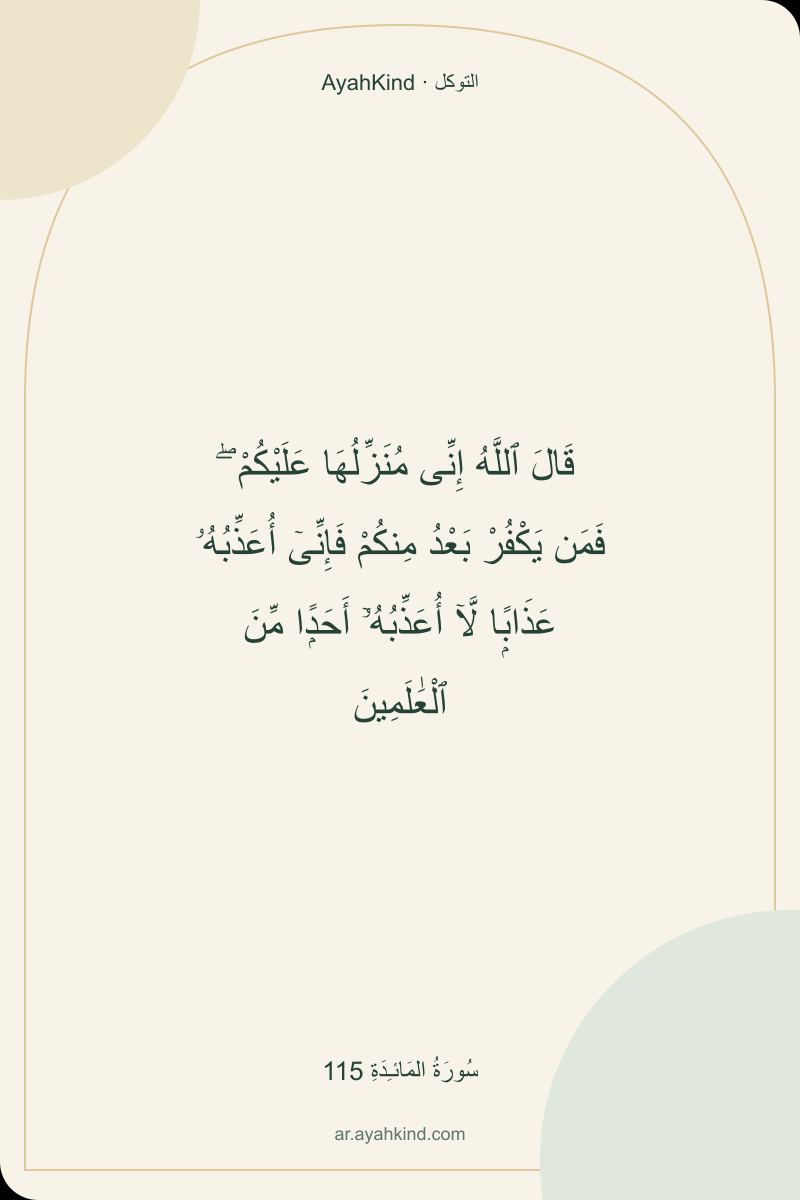 التوكل · AyahKind
قَالَ ٱللَّهُ إِنِّى مُنَزِّلُهَا عَلَيْكُمْ ۖ
فَمَن يَكْفُرْ بَعْدُ مِنكُمْ فَإِنِّىٓ أُعَذِّبُهُۥ
عَذَابًۭا لَّآ أُعَذِّبُهُۥٓ أَحَدًۭا مِّنَ
ٱلْعَٰلَمِينَ
سُورَةُ المَائـِدَةِ 115
ar.ayahkind.com